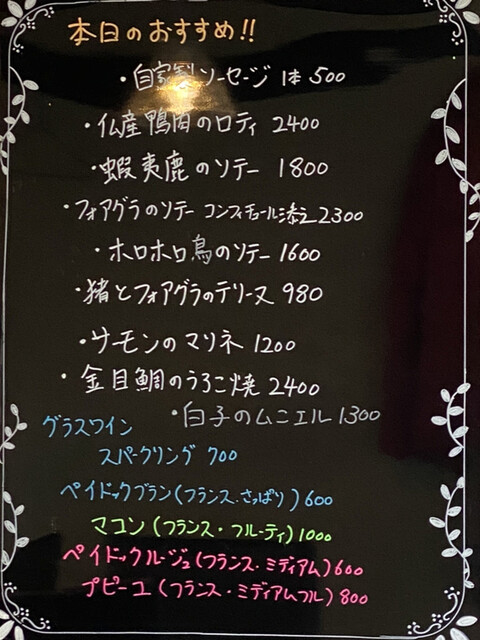 本日のおすすめ!!
・自家製ソーセージ 1本 500
・仏産鴨肉のロティ 2400
・蝦夷鹿のソテー 1800
・フォアグラのソテー コンフィチュール添え 2300
・ホロホロ鳥のソテー 1600
・猪とフォアグラのテリーヌ 980
・サーモンのマリネ 1200
・金目鯛のうろこ焼 2400
・白子のムニエル 1300
グラスワイン
スパークリング 700
ペイドックブラン(フランス・さっぱり) 600
マコン(フランス・フルーティ) 1000
ペイドックルージュ(フランス・ミディアム) 600
プピーユ(フランス・ミディアムフル) 800